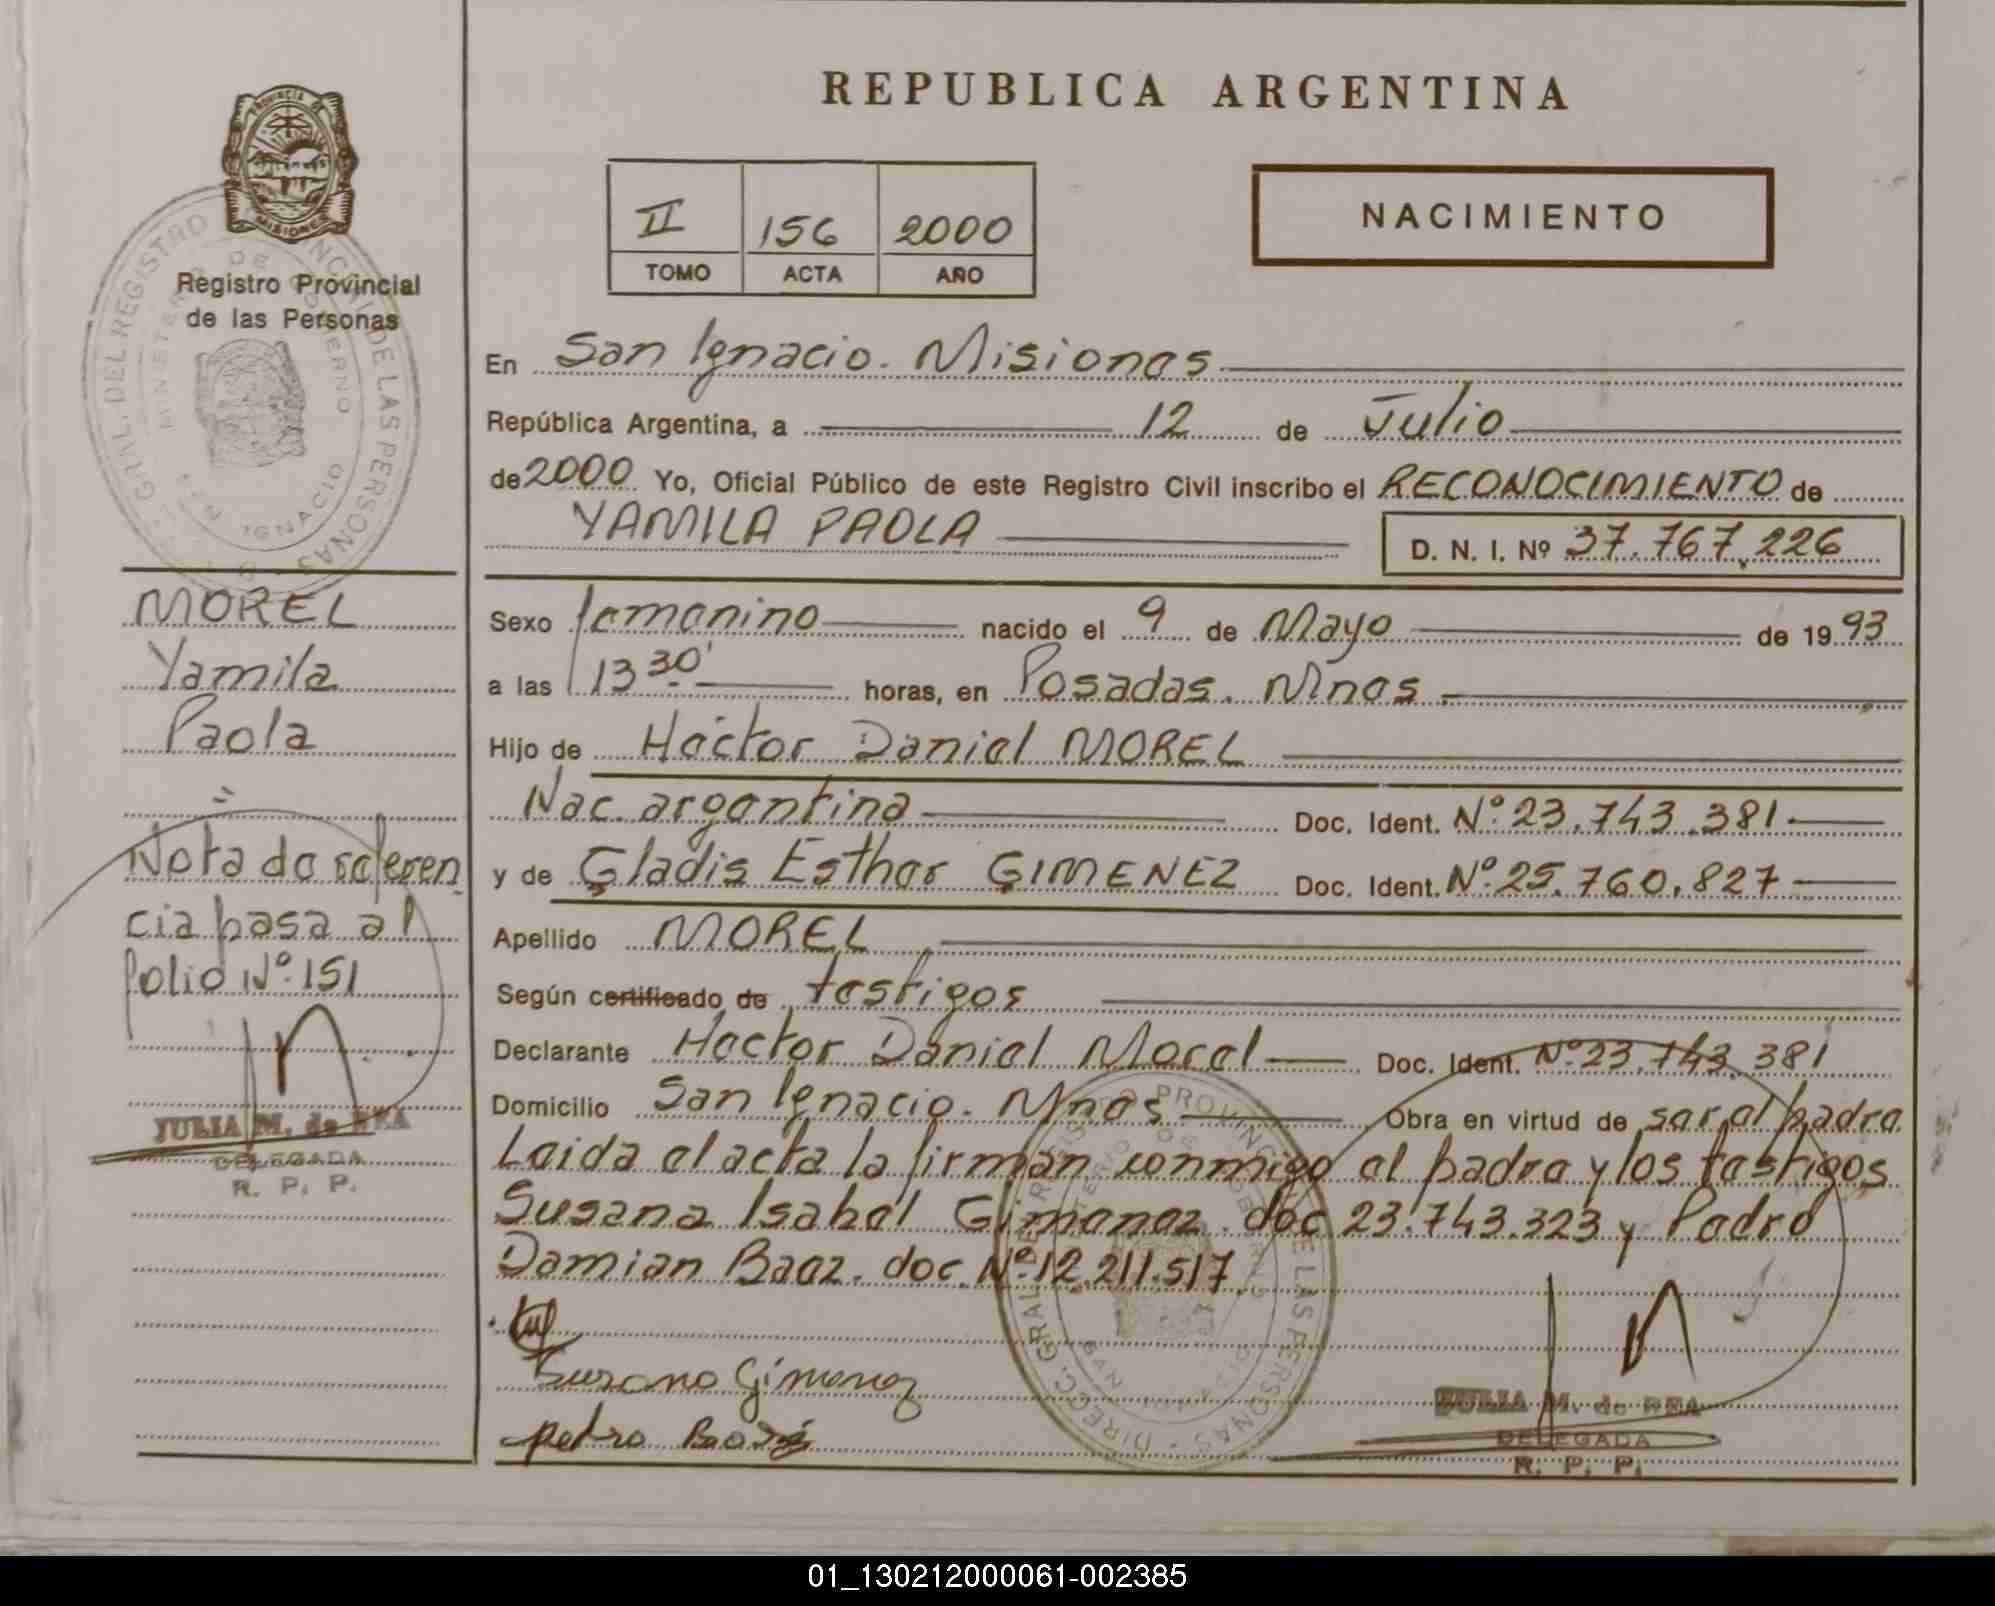 REPUBLICA ARGENTINA
PROVINCIA DE
MISIONES
Registro Provincial
de las Personas
II 156 2000
TOMO ACTA AÑO
NACIMIENTO
En San Ignacio. Misiones
República Argentina, a 12 de Julio
de 2000 Yo, Oficial Público de este Registro Civil inscribo el RECONOCIMIENTO de
YAMILA PAOLA D. N. I. Nº 37.767.226
MOREL
Yamila
Paola
Nota de referen
cia pasa al
folio Nº 151
JULIA M. de REA
DELEGADA
R. P. P.
Sexo femenino nacido el 9 de Mayo de 1993
a las 13 30' horas, en Posadas. Mnes.
Hijo de Héctor Daniel MOREL
Nac. argentina Doc. Ident. Nº 23.743.381
y de Gladis Esther GIMENEZ Doc. Ident. Nº 25.760.827
Apellido MOREL
Según certificado de testigos
Declarante Hector Daniel Morel Doc. Ident. Nº 23.743.381
Domicilio San Ignacio. Mnes Obra en virtud de ser el padre
Leida el acta la firman conmigo el padre y los testigos
Susana Isabel Gimenez. doc 23.743.323 y Pedro
Damian Baez. doc. Nº 12.211.517
Susana Gimenez
pedro Baez
JULIA M. de REA
DELEGADA
R. P. P.
01_130212000061-002385